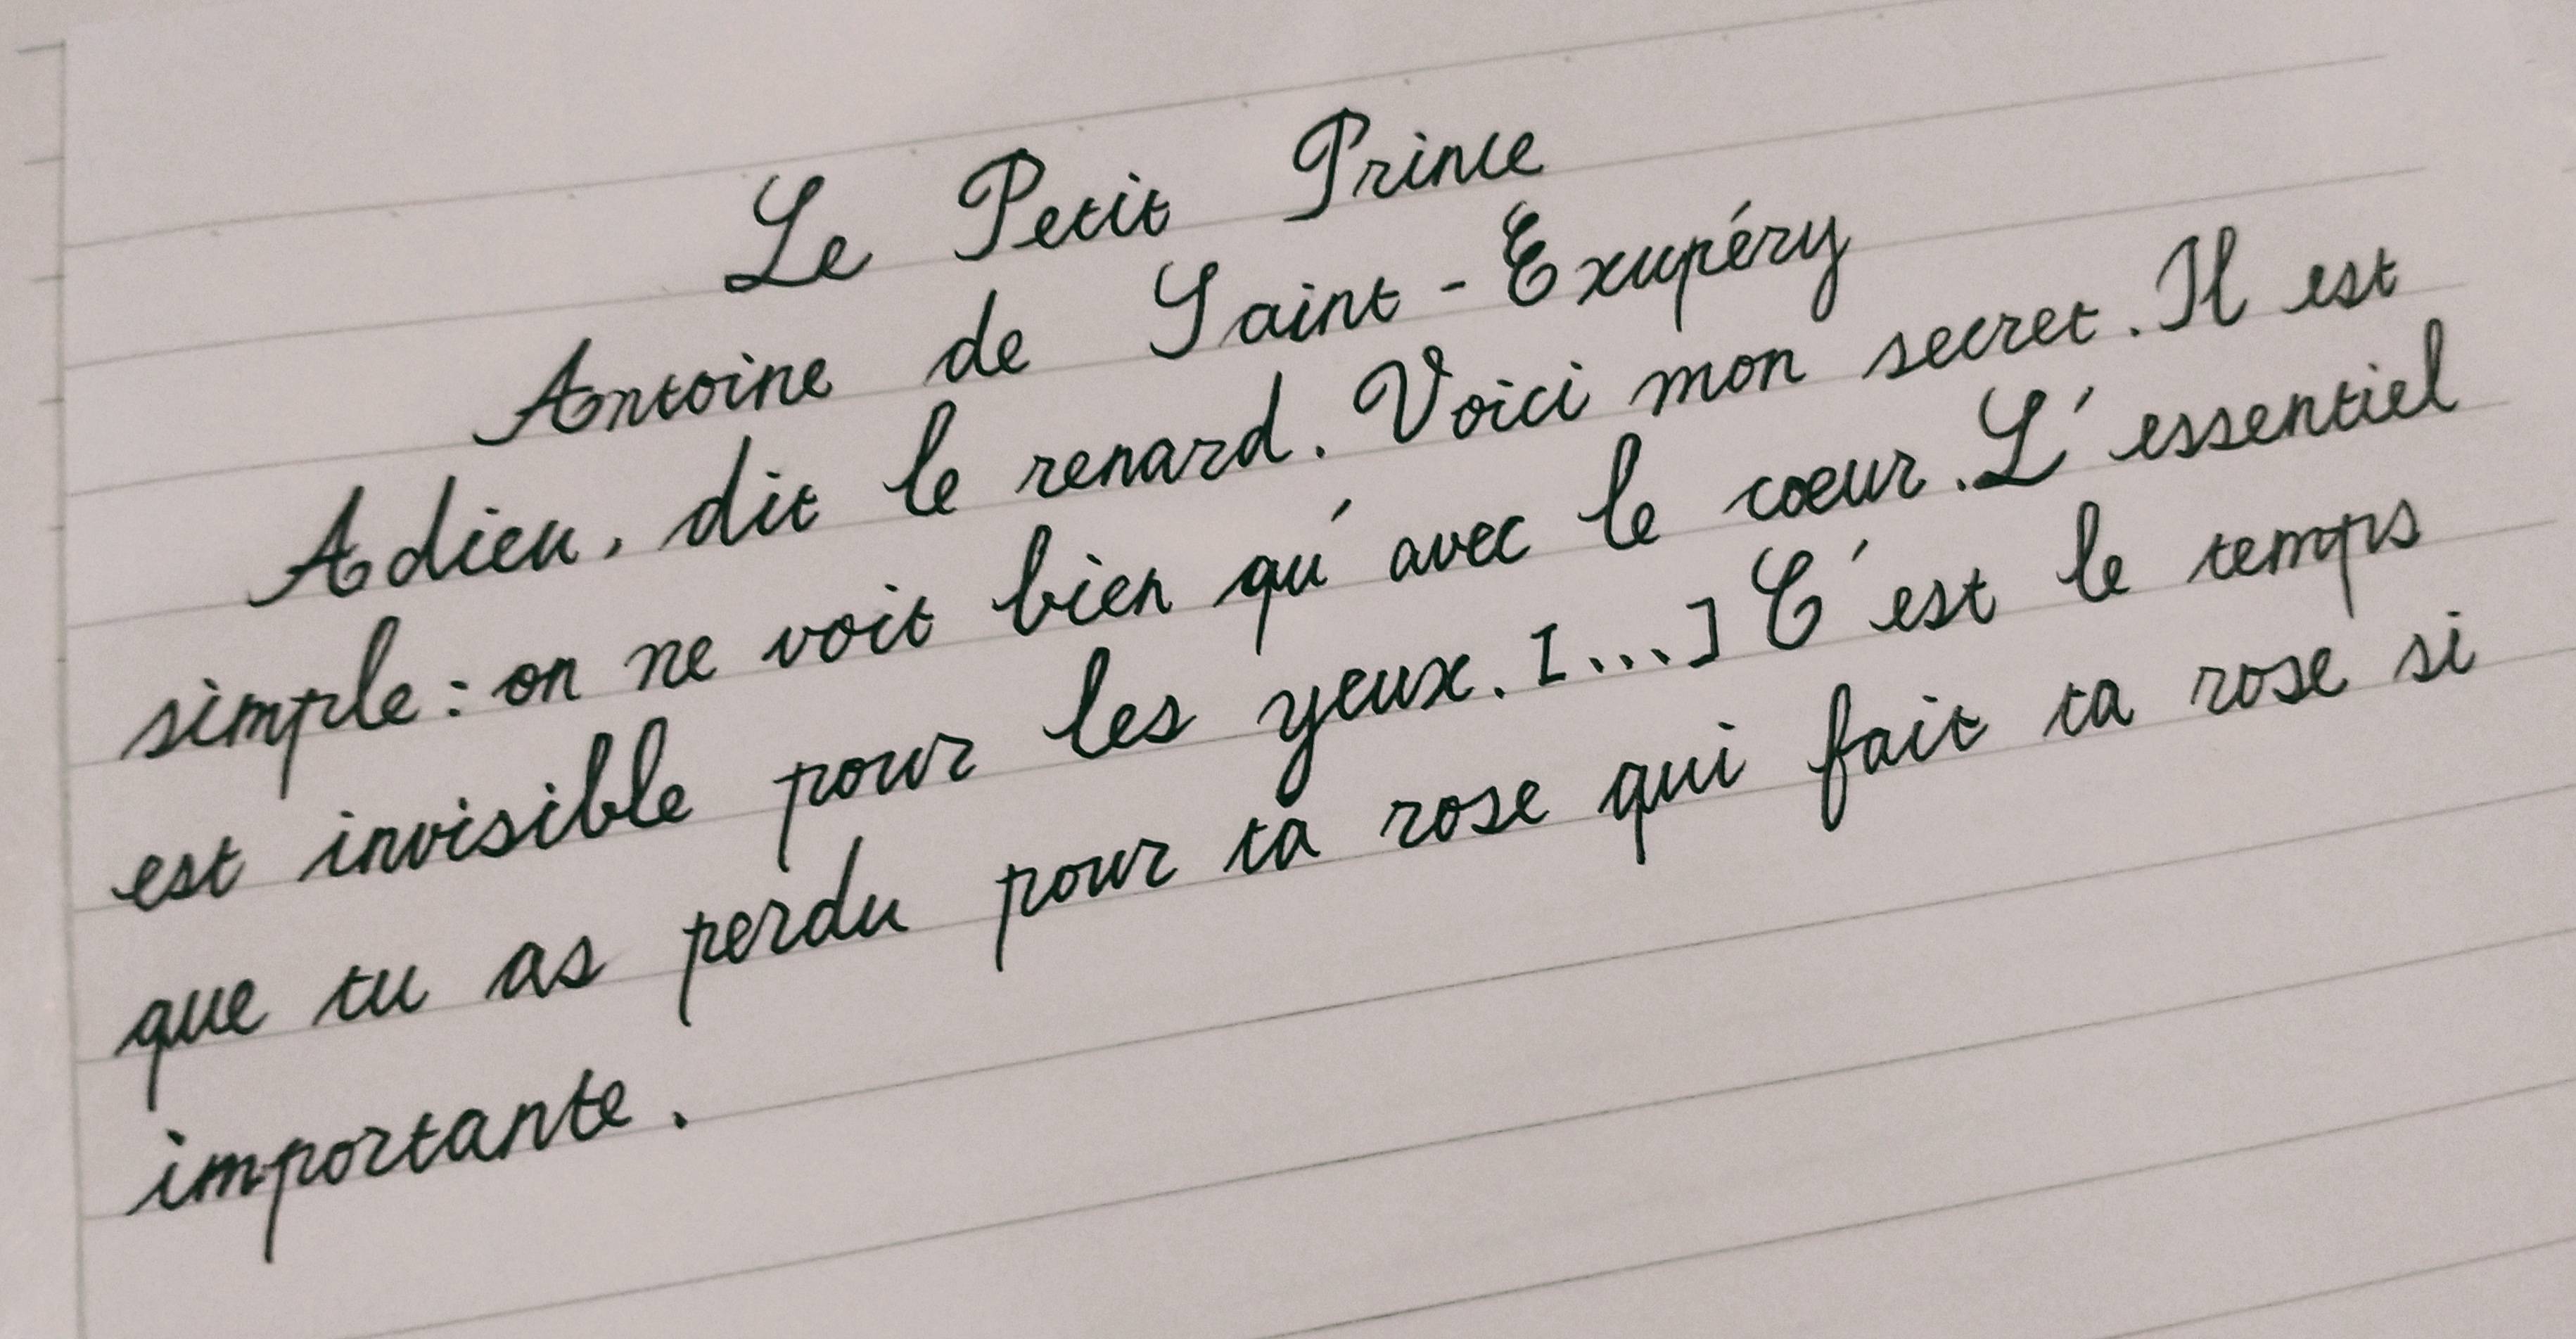 Le Petit Prince
Antoine de Saint-Exupéry
Adieu, dit le renard. Voici mon secret. Il est
simple : on ne voit bien qu'avec le cœur. L'essentiel
est invisible pour les yeux. [...] C'est le temps
que tu as perdu pour ta rose qui fait ta rose si
importante.